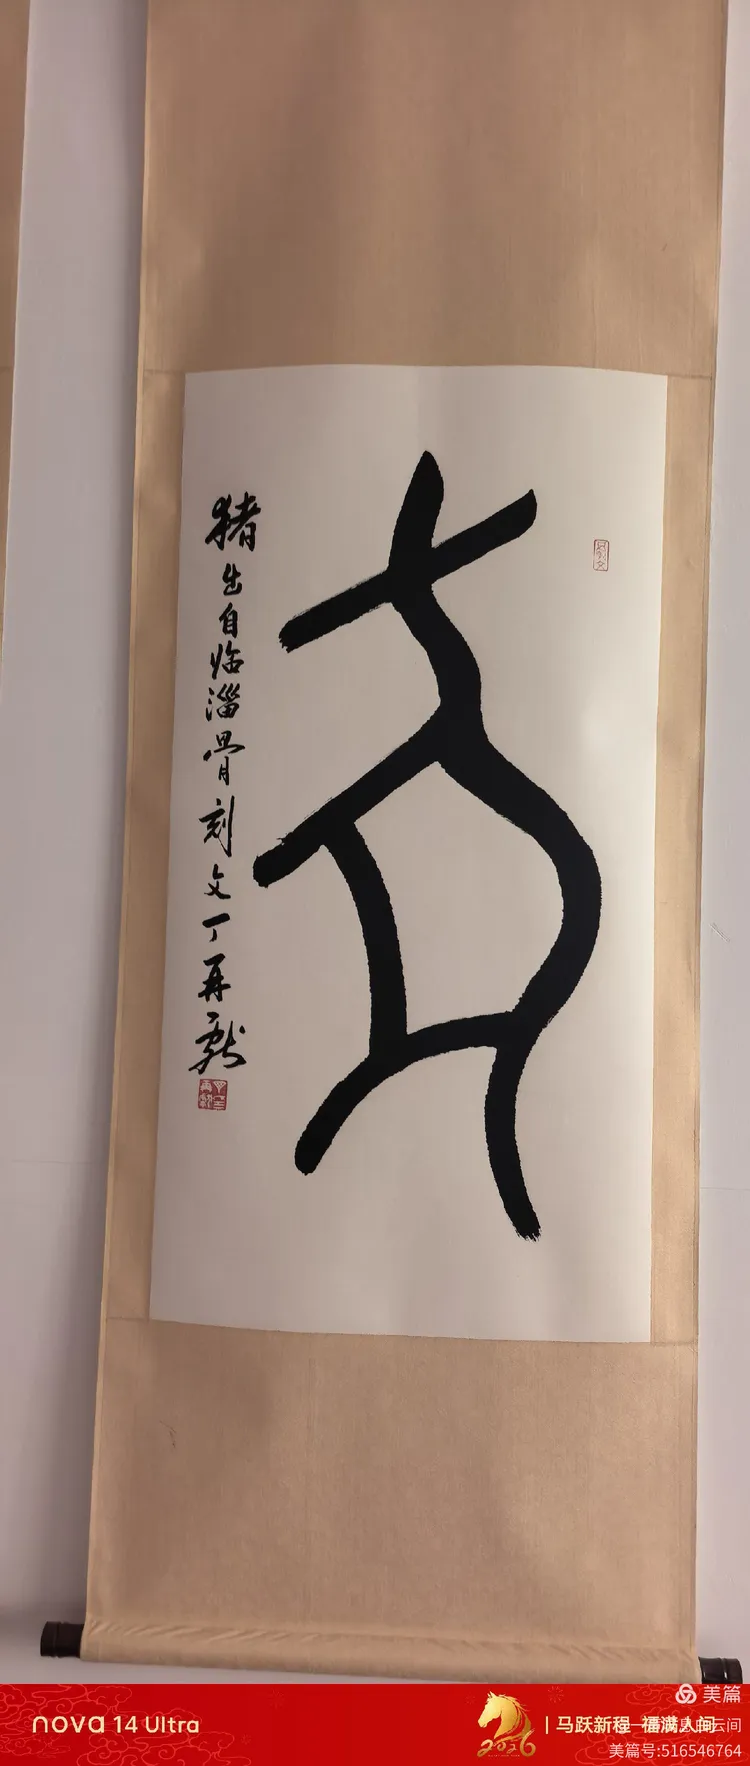 猪出自临淄骨刻文丁再献
nova 14 Ultra
2026
马跃新程 福满人间
美篇
美篇号:516546764